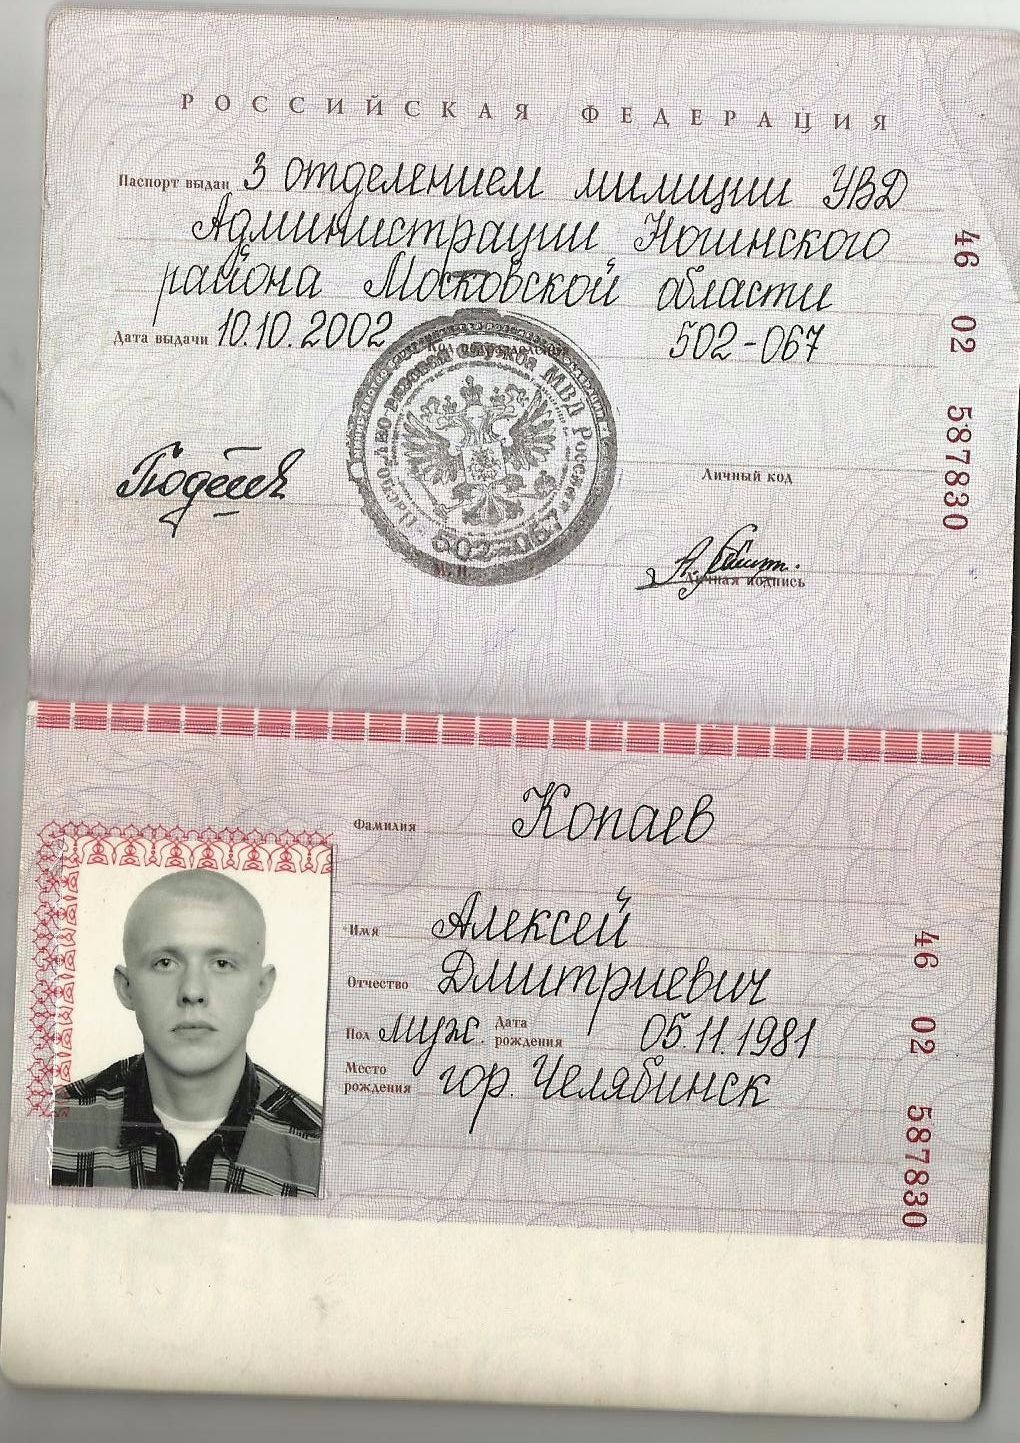 РОССИЙСКАЯ ФЕДЕРАЦИЯ
Паспорт выдан 3 отделением милиции УВД
Администрации Ногинского
района Московской области
Дата выдачи 10.10.2002 Код подразделения 502-067
Паспортно-визовая служба МВД России
502-067
Личный код
М.П.
Личная подпись
46 02 587830
Фамилия Копаев
Имя Алексей
Отчество Дмитриевич
Пол муж. Дата рождения 05.11.1981
Место рождения гор. Челябинск
46 02 587830